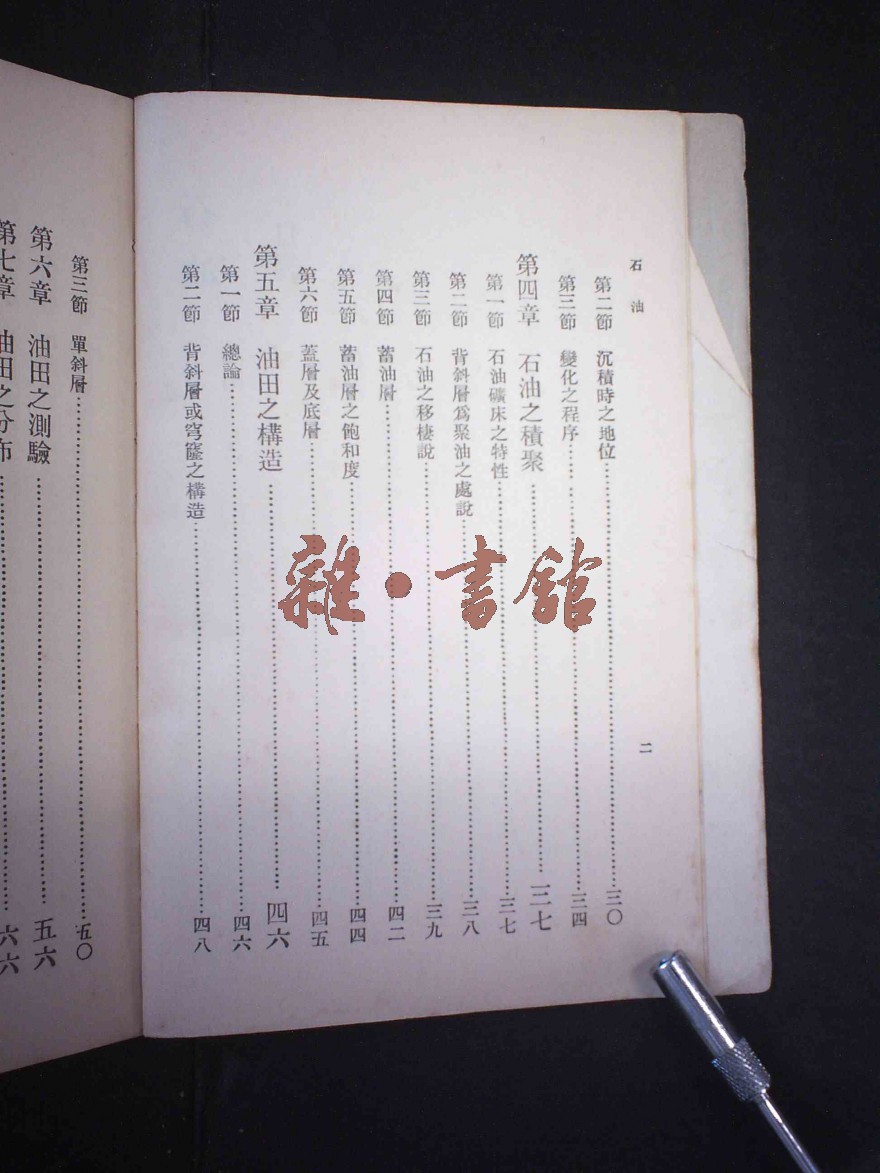 石油
二
第二節 沉積時之地位……三〇
第三節 變化之程序……三四
第四章 石油之積聚……三七
第一節 石油礦床之特性……三七
第二節 背斜層爲聚油之處說……三八
第三節 石油之移棲說……三九
第四節 蓄油層……四二
第五節 蓄油層之飽和度……四四
第六節 蓋層及底層……四五
第五章 油田之構造……四六
第一節 總論……四六
第二節 背斜層或穹窿之構造……四八
第三節 單斜層……五〇
第六章 油田之測驗……五六
第七章 油田之分布……六六
雜·書館